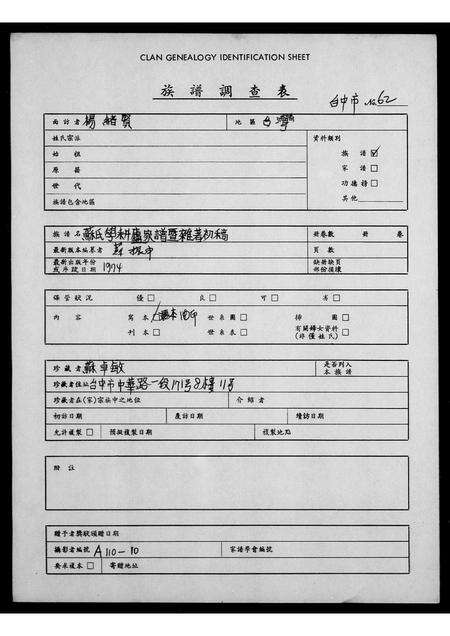 CLAN GENEALOGY IDENTIFICATION SHEET
族 譜 調 查 表
台中市 No 62
面訪者 楊緒賢 地區 台灣
姓氏宗派 資料類別
始祖 族譜 ☑
原籍 家譜 □
世代 功德榜 □
族譜包含地區 其他
族譜名 蘇氏學科廬家譜暨雜著初稿 冊卷數 冊 卷
最新版本編纂者 蘇 頁數
最新出版年份 1974 缺冊缺頁
或手跋日期 部份損壞
保管狀況 優 □ 良 □ 可 □ 劣 □
內容 寫本 世系圖 □ 插圖 □
刊本 □ 世系表 □ 有關婦女資料 □
(非僅姓氏)
珍藏者 蘇卓敏 是否列入
本族譜
珍藏者住址 台中市中華路一段171号8樓11号
珍藏者在(家)宗族中之地位 介紹者
初訪日期 産訪日期 續訪日期
允許複製 □ 預擬複製日期 複製地點
附註
贈予者獎狀頒贈日期
攝影者編號 A110-10 家譜學會編號
需求複本 □ 寄贈地址